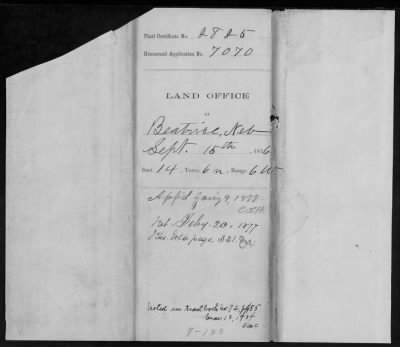 Final Certificate No. 2825
Homestead Application No. 7070
LAND OFFICE
AT
Beatrice, Neb
Sept. 15th 1876
Sect. 14, Town. 6 n, Range 6 W
App'd Jany 9, 1878
C.A.H.
Pat. Feby. 20, 1877
page 321.
Posted in Tract Book
Mar. 13, 1934
7-185